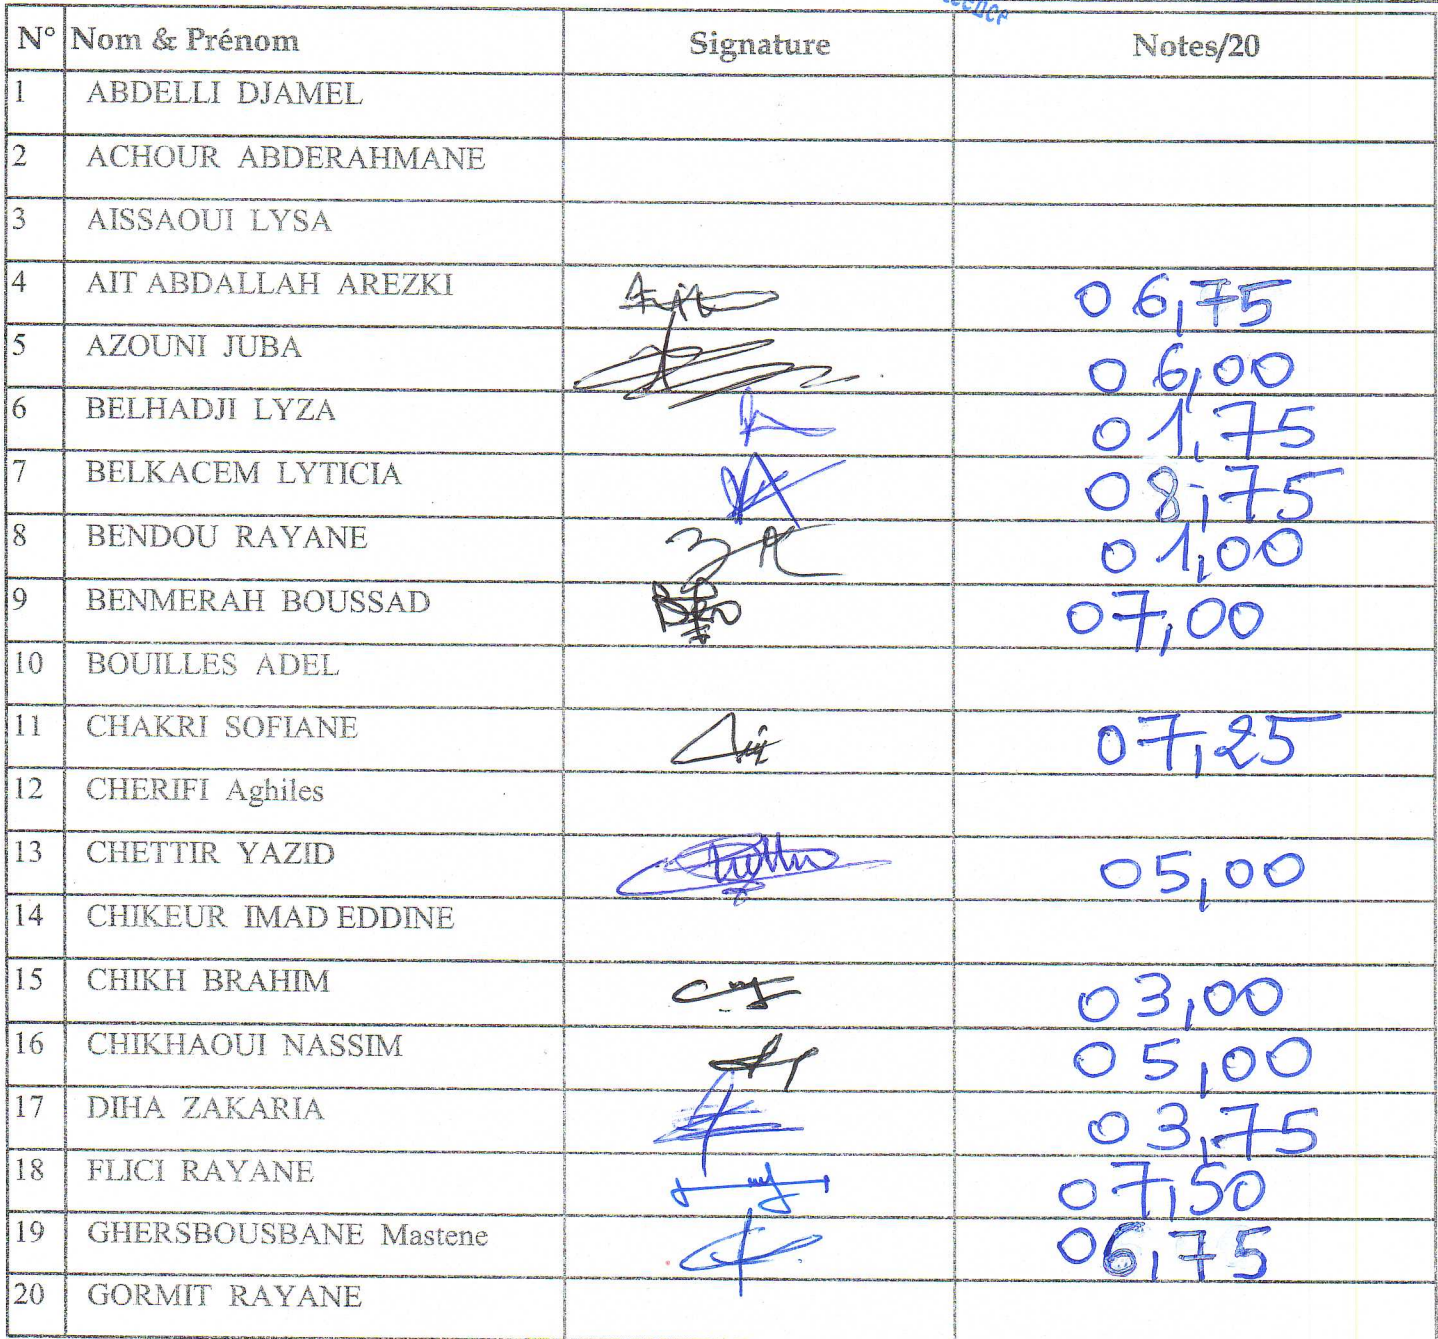 N° Nom & Prénom Signature Notes/20
1 ABDELLI DJAMEL
2 ACHOUR ABDERAHMANE
3 AISSAOUI LYSA
4 AIT ABDALLAH AREZKI 06,75
5 AZOUNI JUBA 06,00
6 BELHADJI LYZA 01,75
7 BELKACEM LYTICIA 08,75
8 BENDOU RAYANE 01,00
9 BENMERAH BOUSSAD 07,00
10 BOUILLES ADEL
11 CHAKRI SOFIANE 07,25
12 CHERIFI Aghiles
13 CHETTIR YAZID 05,00
14 CHIKEUR IMAD EDDINE
15 CHIKH BRAHIM 03,00
16 CHIKHAOUI NASSIM 05,00
17 DIHA ZAKARIA 03,75
18 FLICI RAYANE 07,50
19 GHERSBOUSBANE Mastene 06,75
20 GORMIT RAYANE